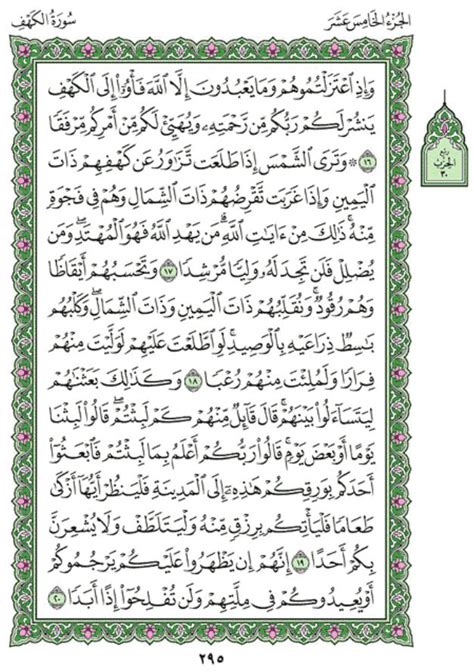 الجُزْءُ الخَامِسَ عَشَرَ
سُورَةُ الكَهْفِ
وَإِذِ ٱعْتَزَلْتُمُوهُمْ وَمَا يَعْبُدُونَ إِلَّا ٱللَّهَ فَأْوُۥٓا۟ إِلَى ٱلْكَهْفِ
يَنشُرْ لَكُمْ رَبُّكُم مِّن رَّحْمَتِهِۦ وَيُهَيِّئْ لَكُم مِّنْ أَمْرِكُم مِّرْفَقًا
١٦ ۞ وَتَرَى ٱلشَّمْسَ إِذَا طَلَعَت تَّزَٰوَرُ عَن كَهْفِهِمْ ذَاتَ
ٱلْيَمِينِ وَإِذَا غَرَبَت تَّقْرِضُهُمْ ذَاتَ ٱلشِّمَالِ وَهُمْ فِى فَجْوَةٍ
مِّنْهُ ۚ ذَٰلِكَ مِنْ ءَايَٰتِ ٱللَّهِ ۗ مَن يَهْدِ ٱللَّهُ فَهُوَ ٱلْمُهْتَدِ ۖ وَمَن
يُضْلِلْ فَلَن تَجِدَ لَهُۥ وَلِيًّا مُّرْشِدًا ١٧ وَتَحْسَبُهُمْ أَيْقَاظًا
وَهُمْ رُقُودٌ ۚ وَنُقَلِّبُهُمْ ذَاتَ ٱلْيَمِينِ وَذَاتَ ٱلشِّمَالِ ۖ وَكَلْبُهُم
بَٰسِطٌ ذِرَاعَيْهِ بِٱلْوَصِيدِ ۚ لَوِ ٱطَّلَعْتَ عَلَيْهِمْ لَوَلَّيْتَ مِنْهُمْ
فِرَارًا وَلَمُلِئْتَ مِنْهُمْ رُعْبًا ١٨ وَكَذَٰلِكَ بَعَثْنَٰهُمْ
لِيَتَسَآءَلُوا۟ بَيْنَهُمْ ۚ قَالَ قَآئِلٌ مِّنْهُمْ كَمْ لَبِثْتُمْ ۖ قَالُوا۟ لَبِثْنَا
يَوْمًا أَوْ بَعْضَ يَوْمٍ ۚ قَالُوا۟ رَبُّكُمْ أَعْلَمُ بِمَا لَبِثْتُمْ فَٱبْعَثُوٓا۟
أَحَدَكُم بِوَرِقِكُمْ هَٰذِهِۦٓ إِلَى ٱلْمَدِينَةِ فَلْيَنظُرْ أَيُّهَآ أَزْكَىٰ
طَعَامًا فَلْيَأْتِكُم بِرِزْقٍ مِّنْهُ وَلْيَتَلَطَّفْ وَلَا يُشْعِرَنَّ
بِكُمْ أَحَدًا ١٩ إِنَّهُمْ إِن يَظْهَرُوا۟ عَلَيْكُمْ يَرْجُمُوكُمْ
أَوْ يُعِيدُوكُمْ فِى مِلَّتِهِمْ وَلَن تُفْلِحُوٓا۟ إِذًا أَبَدًا ٢٠
ربع
الحزب
٣٠
٢٩٥